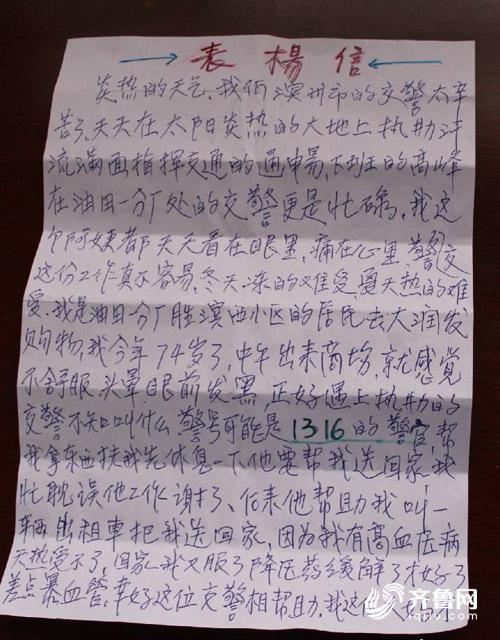 →表楊信←
炎热的天气,我们滨州市的交警太辛
苦了,天天在太阳炎热的大地上执勤汗
流满面指挥交通的通畅,下班的高峰
在油田一分厂处的交警更是忙碌,我这
个阿姨都天天看在眼里,痛在心里,警交
这份工作真不容易,冬天冻的难受,夏天热的难
受,我是油田一分厂胜滨西小区的居民去大润发
购物,我今年74岁了,中午出来商场,就感觉
不舒服,头晕眼前发黑,正好遇上执勤的
交警不知叫什么警号可能是1316的警官,帮
我拿东西扶我先休息一下他要帮我送回家,我
忙耽误他工作谢了、后来他帮助我叫一
辆出租車把我送回家,因为我有高血压病
天热受不了,回家我又服了降压药缓解了才好了
差点暴血管,幸好这位交警相帮助,我这
齐鲁网
iqilu.com